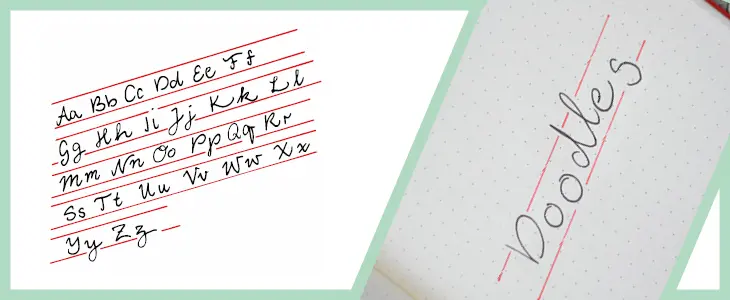 Aa Bb Cc Dd Ee Ff
Gg Hh Ii Jj Kk Ll
Mm Nn Oo Pp Qq Rr
Ss Tt Uu Vv Ww Xx
Yy Zz
Doodles